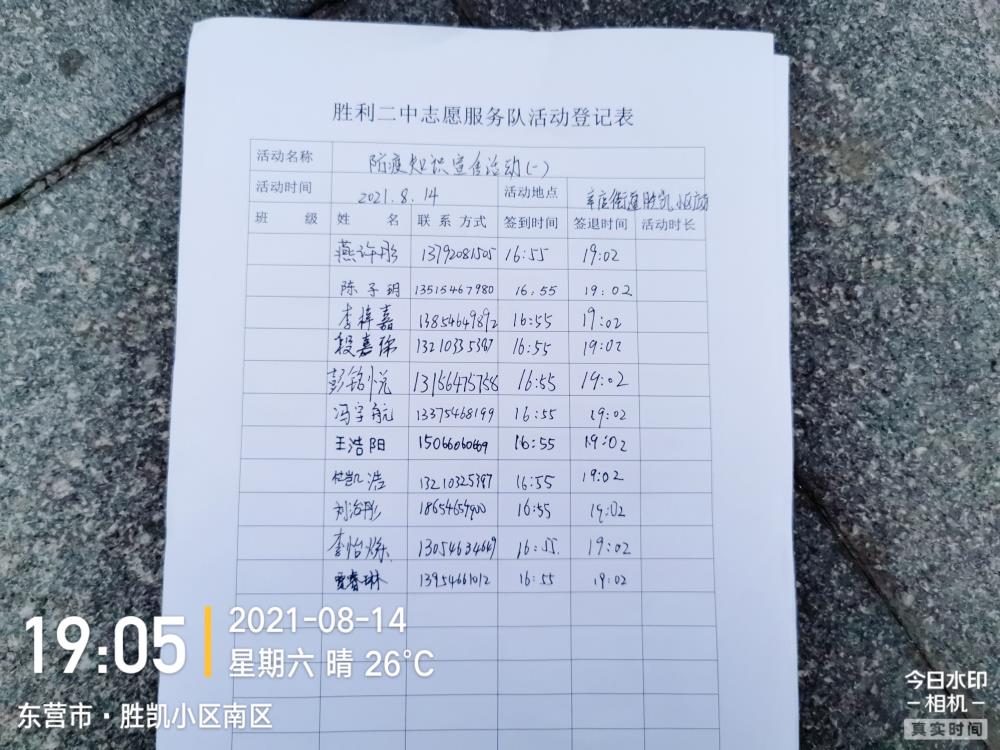 胜利二中志愿服务队活动登记表
活动名称 防疫知识宣传活动(一)
活动时间 2021.8.14 活动地点 辛店街道胜凯小区南
班 级 姓 名 联系方式 签到时间 签退时间 活动时长
燕许彤 13792081505 16:55 19:02
陈子玥 13515467980 16:55 19:02
李梓嘉 13854649892 16:55 19:02
段嘉 13210335387 16:55 19:02
彭铭悦 13156475758 16:55 19:02
冯宇航 13375468199 16:55 19:02
王浩阳 15066060469 16:55 19:02
杜凯浩 13210325387 16:55 19:02
刘洺彤 18654659900 16:55 19:02
李怡 13054634649 16:55 19:02
睿琳 13954661012 16:55 19:02
19:05
2021-08-14
星期六 晴 26℃
东营市·胜凯小区南区
今日水印
-相机-
真实时间